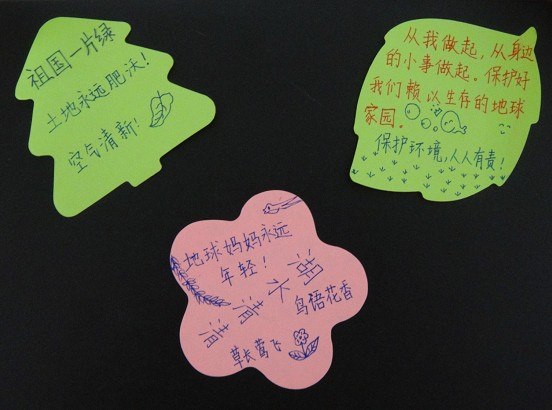 祖国一片绿
土地永远肥沃！
空气清新！
从我做起，从身边
的小事做起。保护好
我们赖以生存的地球
家园。
保护环境，人人有责！
地球妈妈永远
年轻！
湖水清清
鸟语花香
草长莺飞